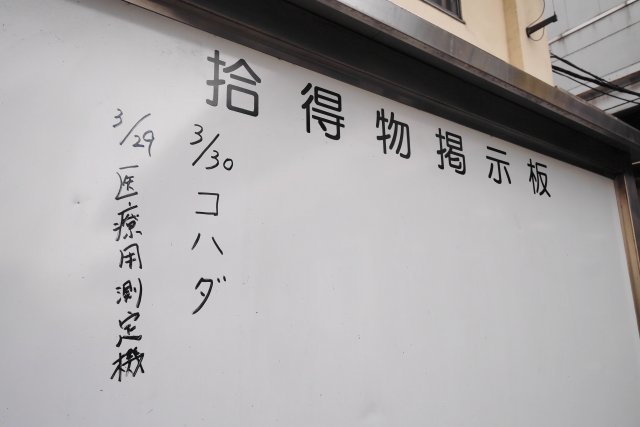 拾得物掲示板
3/30 コハダ
3/29 医療用測定機